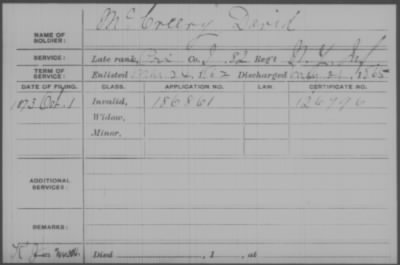 NAME OF SOLDIER: McCreery David
SERVICE: Late rank, Pri Co. I, 82 Reg't N.Y. Inf
TERM OF SERVICE: Enlisted 1862 Discharged 1865
DATE OF FILING. CLASS. APPLICATION NO. LAW. CERTIFICATE NO.
1873 Oct. 1 Invalid, 186861 126776
Widow,
Minor,
ADDITIONAL SERVICES:
REMARKS:
Died , 1 , at